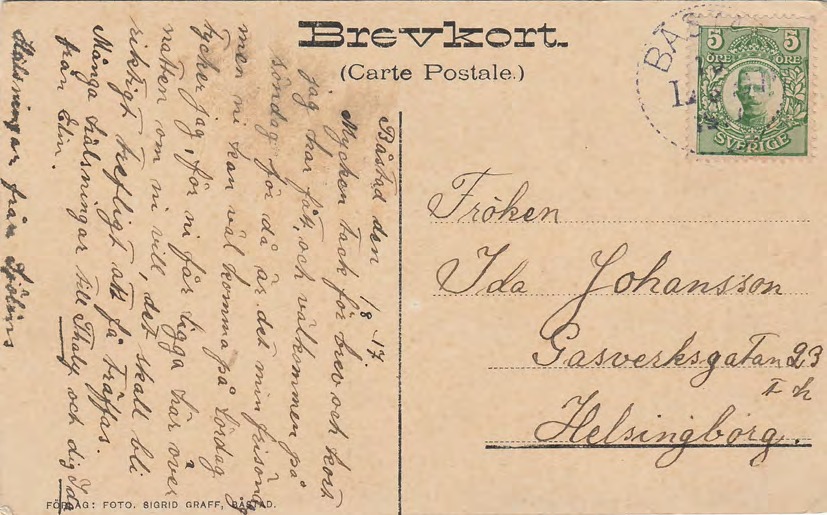 Brevkort.
(Carte Postale.)
BÅS
5 5
ÖRE ÖRE
SVERIGE
Båstad den 1/8 -17.
Mycken tack för brev och kort
jag har fått, och välkommen på
söndag för då är det min frisönd
men ni kan väl komma på lördag
tycker jag, för ni får ligga här över
natten om ni vill, det skall bli
riktigt trefligt att få träffas.
Många hälsningar till Thaly och dig Ida
från Elin.
Hälsningar från Sjölins
Fröken
Ida Johansson
Gasverksgatan 23
Helsingborg.
FÖRLAG: FOTO. SIGRID GRAFF, BÅSTAD.